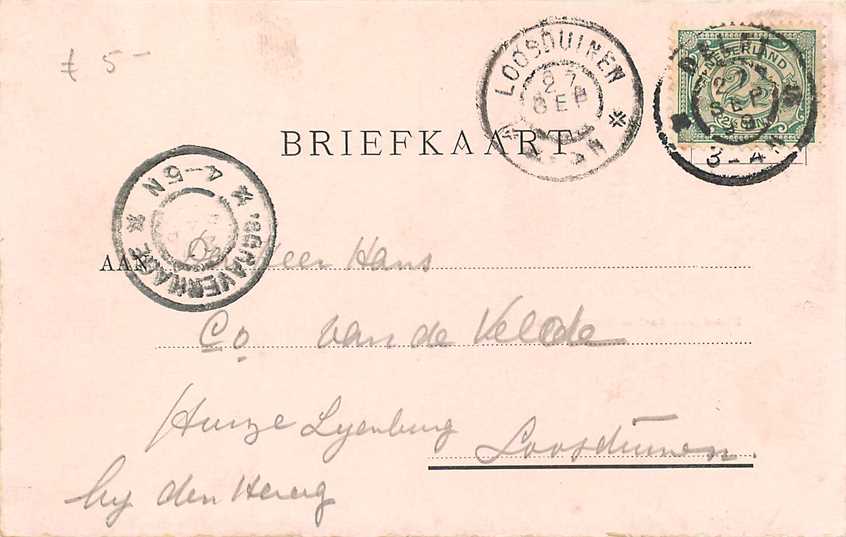 £ 5-
LOOSDUINEN
27
SEP
NEDERLAND
2½
CENT
DELFT
SEP
3-4N
BRIEFKAART
'SGRAVENHAGE
4-5N
AAN
Heer Hans
Co van de Velde
Huize Lyenburg
Loosduinen.
by den Haag